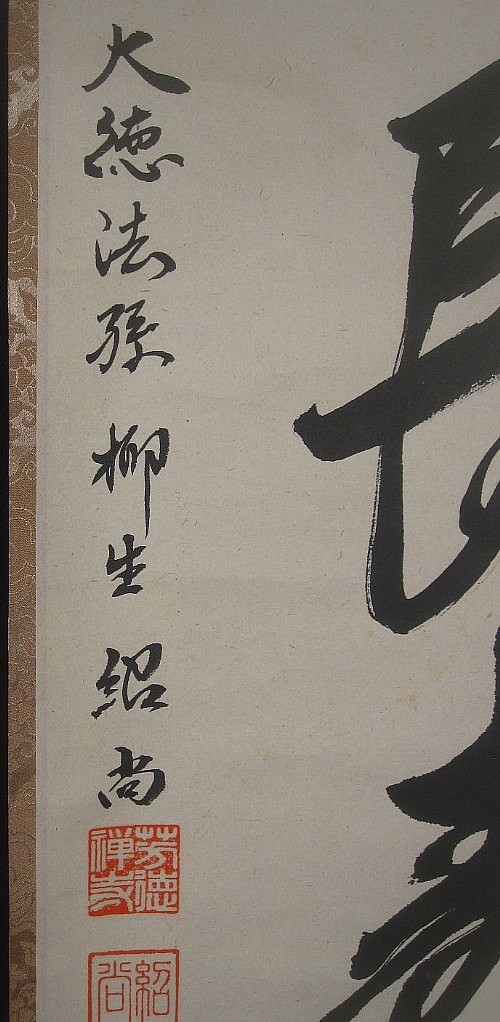 長
大徳法孫 柳生 紹尚
芳徳禅寺
紹尚